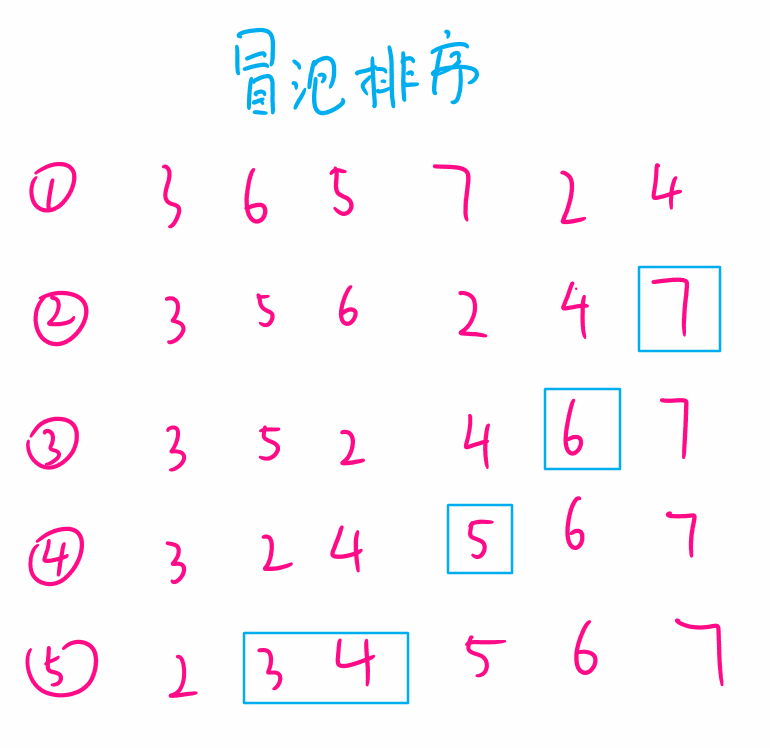 冒泡排序
① 3 6 5 7 2 4
② 3 5 6 2 4 7
③ 3 5 2 4 6 7
④ 3 2 4 5 6 7
⑤ 2 3 4 5 6 7